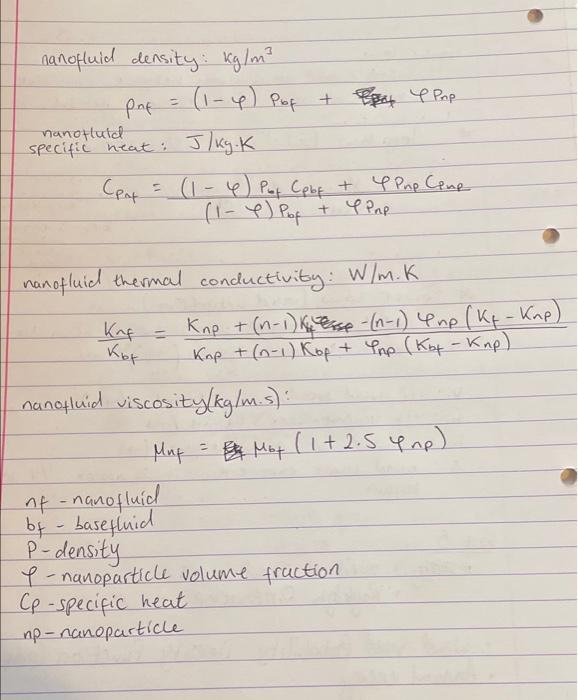 nanofluid density: kg/m³
ρnf = (1-φ) ρbf + φ ρnp
nanofluid
specific heat: J/kg.K
Cpnf = (1-φ) ρbf Cpbf + φ ρnp Cpnp
(1-φ) ρbf + φ ρnp
nanofluid thermal conductivity: W/m.K
Knf / Kbf = Knp + (n-1)Kf -(n-1) φnp (Kf - Knp)
Knp + (n-1) Kbf + φnp (Kbf - Knp)
nanofluid viscosity(kg/m.s):
μnf = μbf (1+2.5 φnp)
nf - nanofluid
bf - basefluid
ρ - density
φ - nanoparticle volume fraction
Cp - specific heat
np - nanoparticle